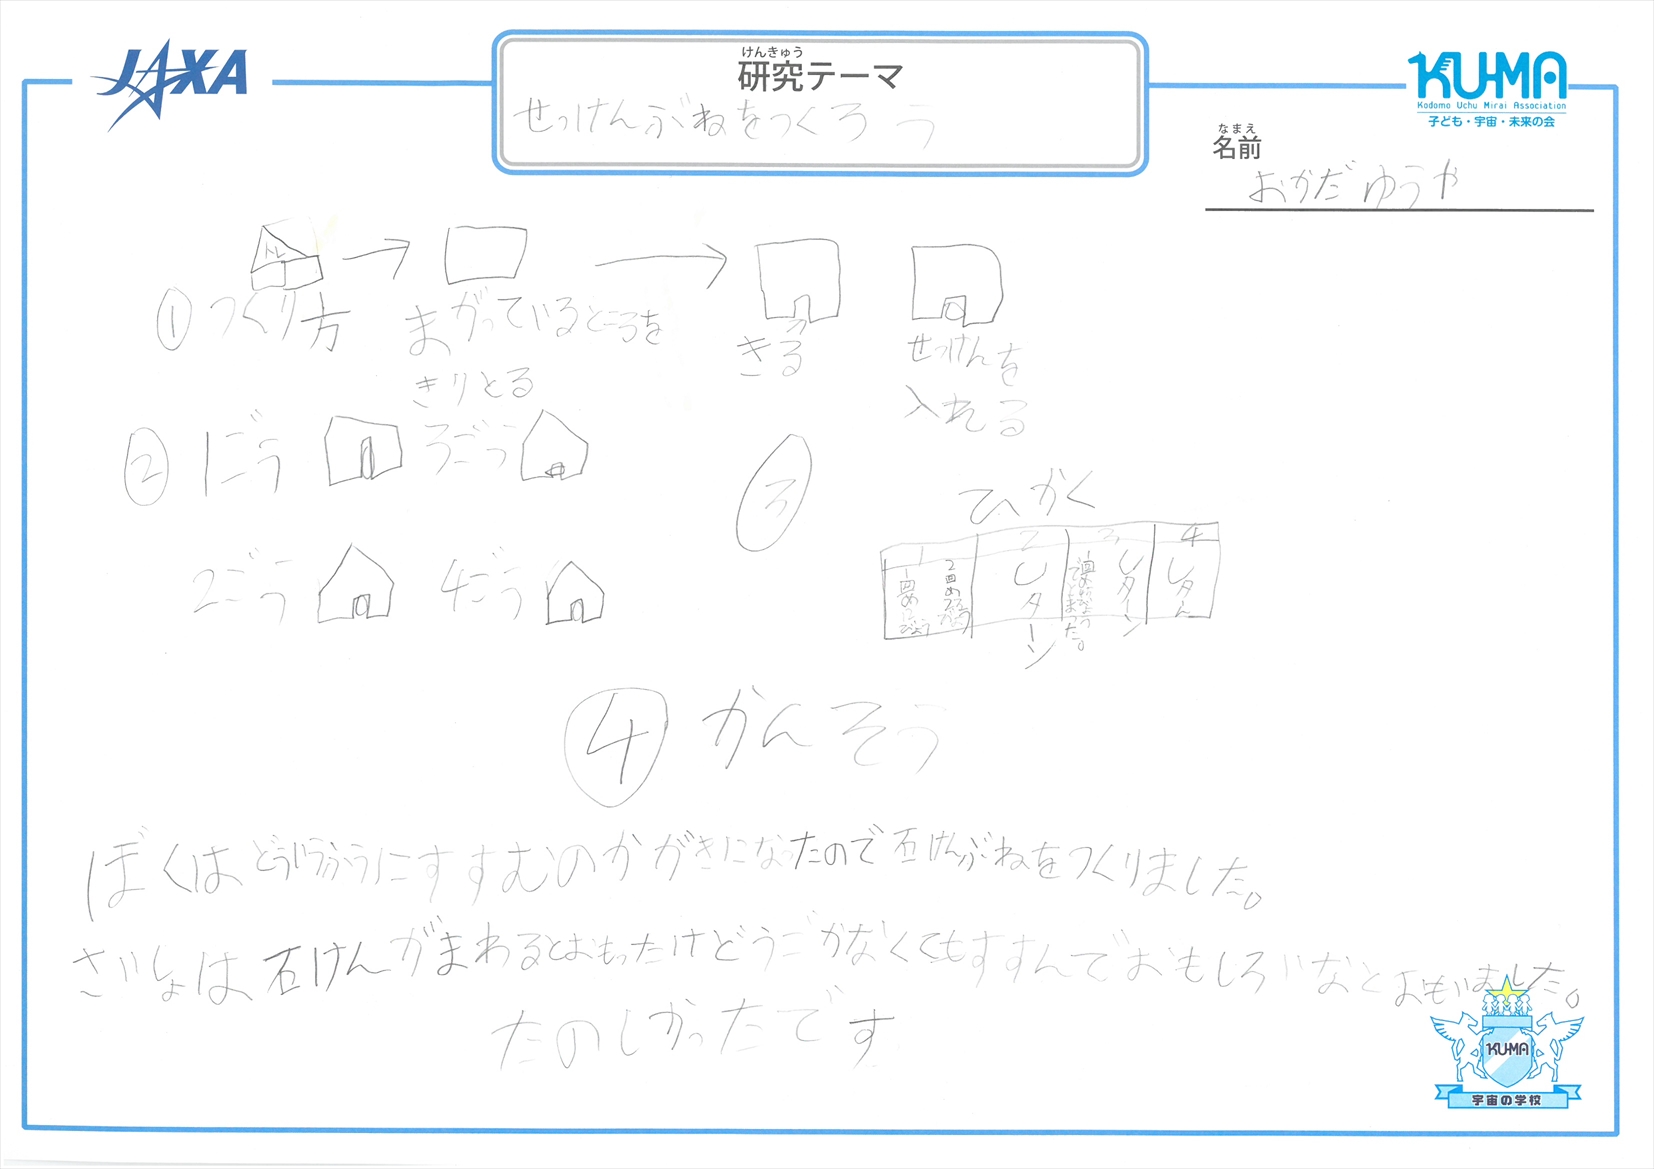 JAXA
けんきゅう
研究テーマ
せっけんぶねをつくろう
KU-MA
Kodomo Uchu Mirai Association
子ども・宇宙・未来の会
なまえ
名前
おかだ ゆうや
トレー
① つくり方
まがっているところを
きりとる
きる
せっけんを
入れる
② 1ごう
3ごう
2ごう
4ごう
③
ひかく
1
2
3
4
1回め
2回め
Uターン
Uターン
Uターん
④ かんそう
ぼくはどういうふうにすすむのかがきになったので石けんぶねをつくりました。
さいしょは石けんがまわるとおもったけどうごかなくてもすすんでおもしろいなとおもいました。
たのしかったです
KU-MA
宇宙の学校